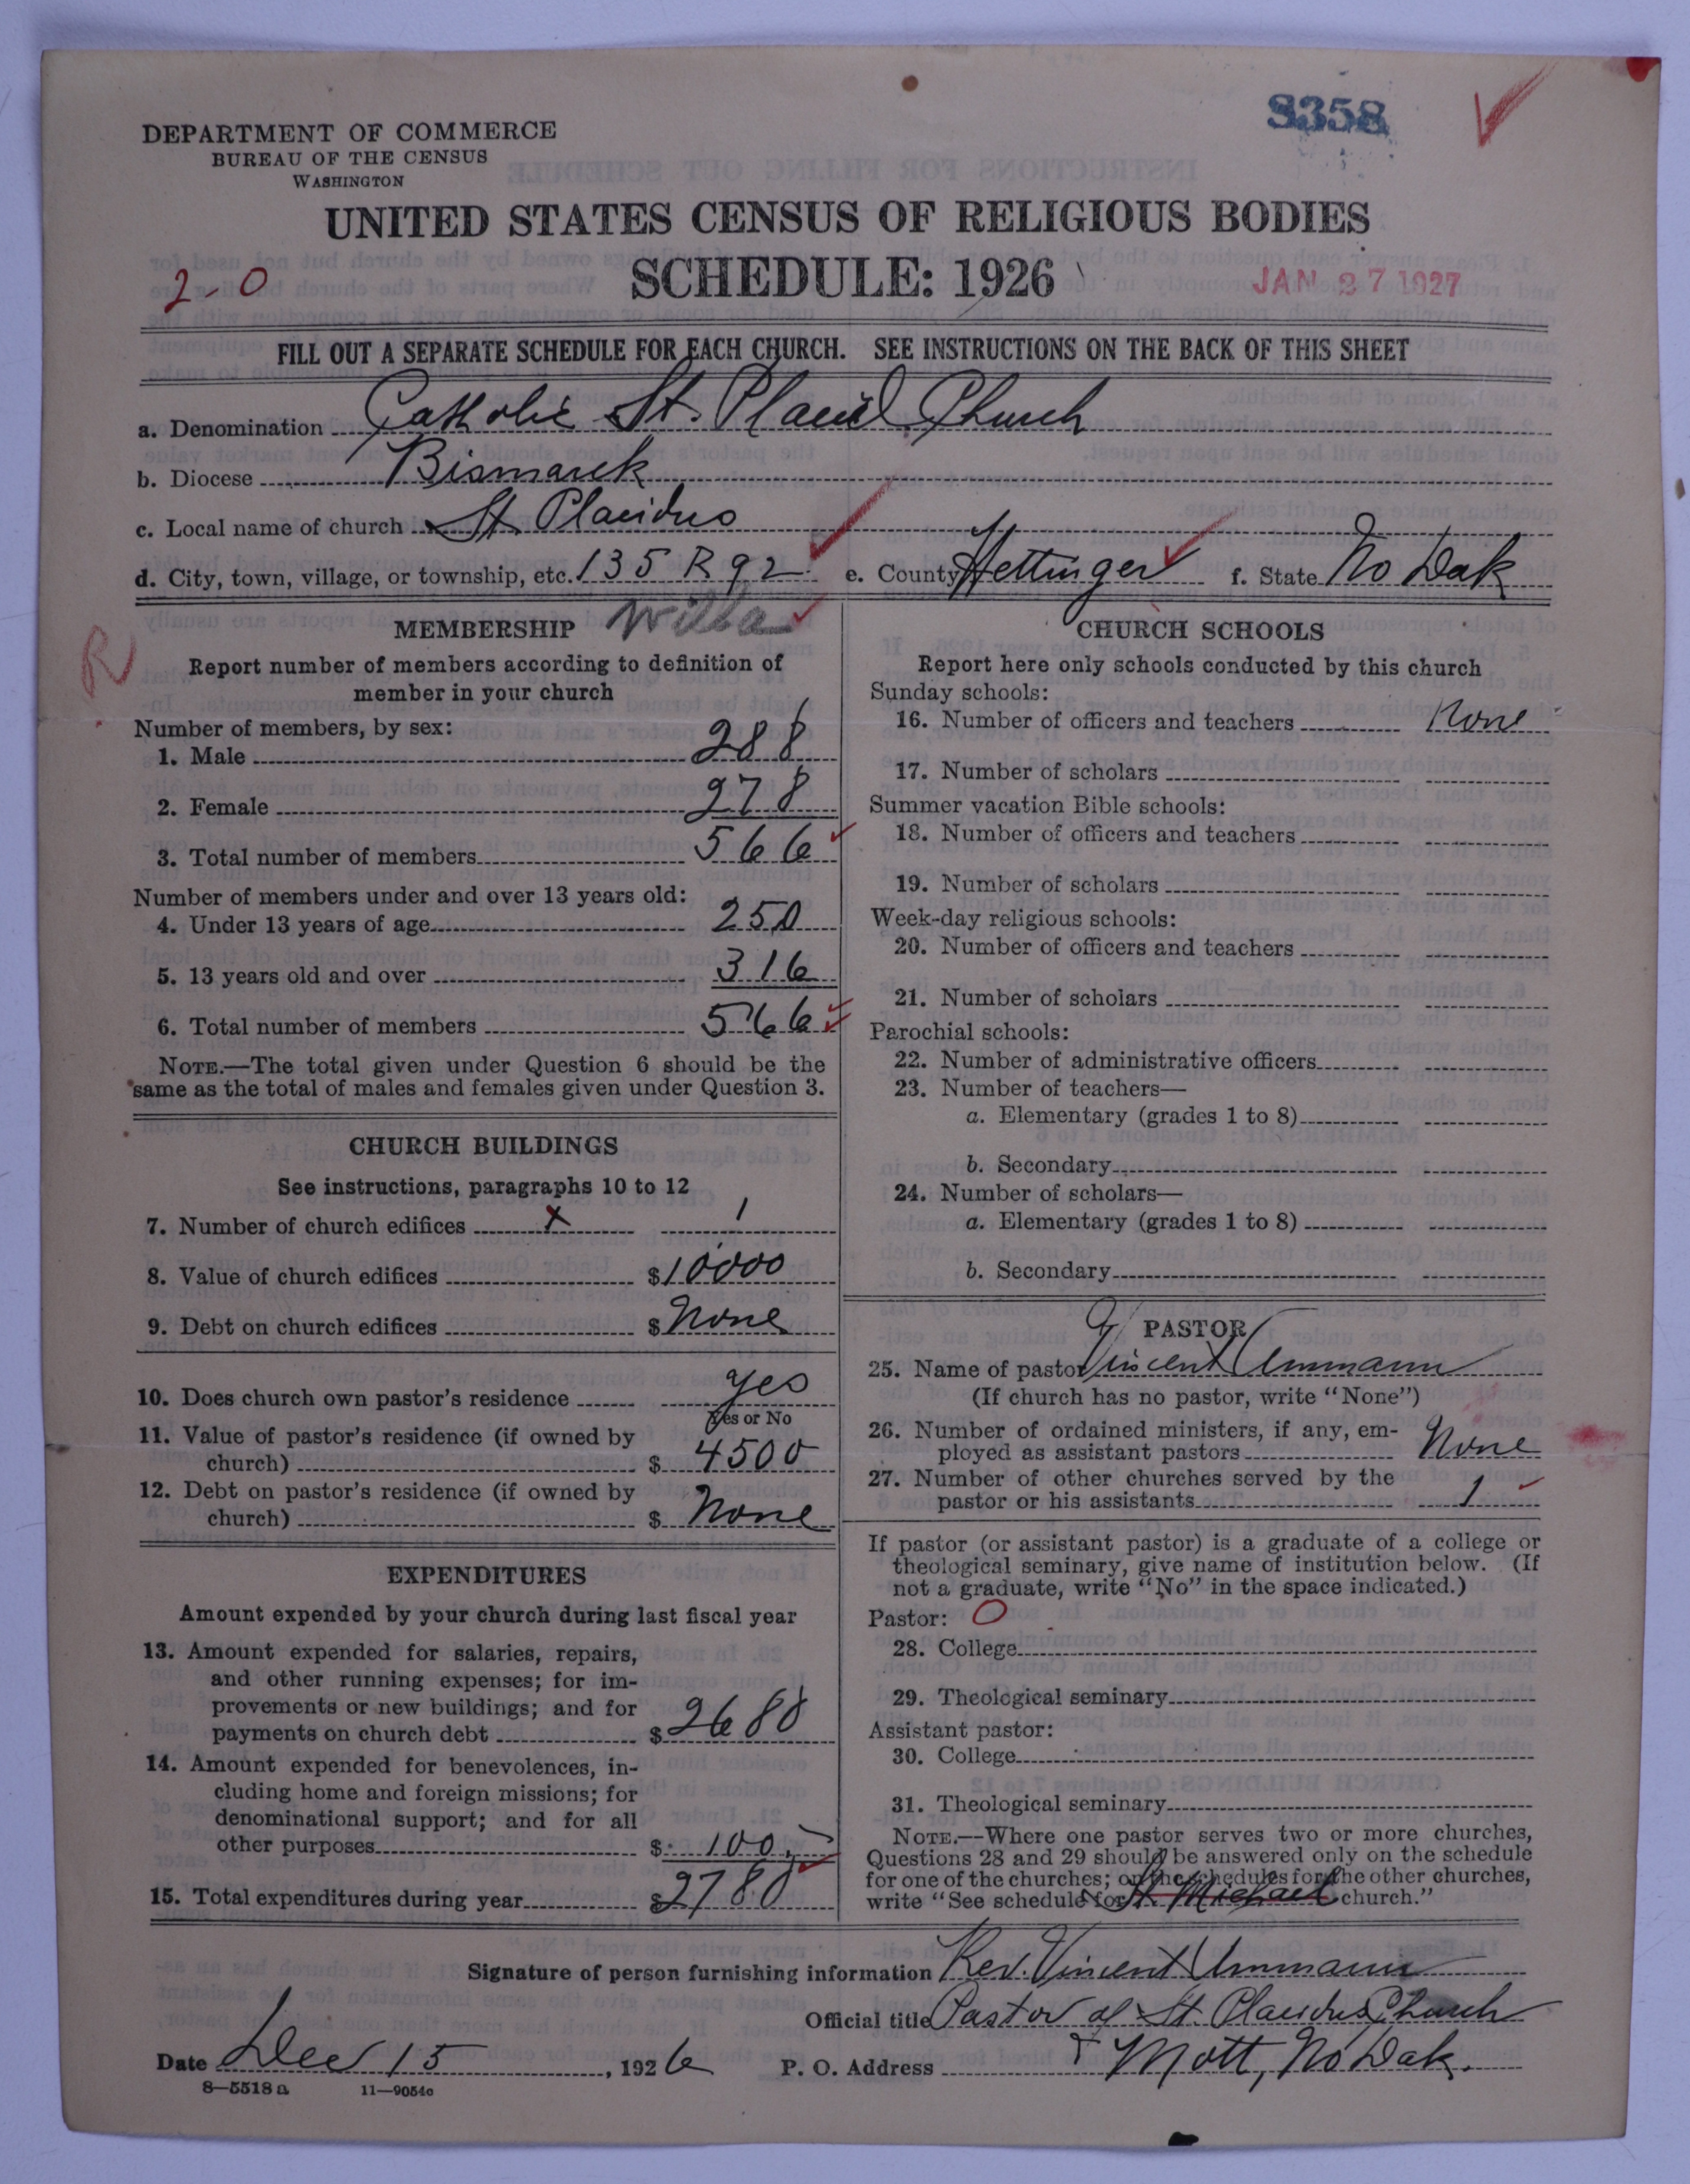 8358
DEPARTMENT OF COMMERCE
BUREAU OF THE CENSUS
WASHINGTON
UNITED STATES CENSUS OF RELIGIOUS BODIES
2-0
SCHEDULE: 1926
JAN 27 1927
FILL OUT A SEPARATE SCHEDULE FOR EACH CHURCH. SEE INSTRUCTIONS ON THE BACK OF THIS SHEET
a. Denomination Catholic St. Placid Church
b. Diocese Bismarck
c. Local name of church St Placidus
d. City, town, village, or township, etc. 135 R 92 e. County Hettinger f. State No Dak
R
MEMBERSHIP Willa
Report number of members according to definition of
member in your church
Number of members, by sex:
1. Male 288
2. Female 278
3. Total number of members 566
Number of members under and over 13 years old:
4. Under 13 years of age 250
5. 13 years old and over 316
6. Total number of members 566
NOTE.—The total given under Question 6 should be the
same as the total of males and females given under Question 3.
CHURCH BUILDINGS
See instructions, paragraphs 10 to 12
7. Number of church edifices x 1
8. Value of church edifices $10000
9. Debt on church edifices $ None
10. Does church own pastor's residence yes
Yes or No
11. Value of pastor's residence (if owned by
church) $ 4500
12. Debt on pastor's residence (if owned by
church) $ None
EXPENDITURES
Amount expended by your church during last fiscal year
13. Amount expended for salaries, repairs,
and other running expenses; for im-
provements or new buildings; and for
payments on church debt $2680
14. Amount expended for benevolences, in-
cluding home and foreign missions; for
denominational support; and for all
other purposes $ 100
15. Total expenditures during year $2780
CHURCH SCHOOLS
Report here only schools conducted by this church
Sunday schools:
16. Number of officers and teachers None
17. Number of scholars
Summer vacation Bible schools:
18. Number of officers and teachers
19. Number of scholars
Week-day religious schools:
20. Number of officers and teachers
21. Number of scholars
Parochial schools:
22. Number of administrative officers
23. Number of teachers—
a. Elementary (grades 1 to 8)
b. Secondary
24. Number of scholars—
a. Elementary (grades 1 to 8)
b. Secondary
PASTOR
25. Name of pastor Vincent Ummann
(If church has no pastor, write "None")
26. Number of ordained ministers, if any, em-
ployed as assistant pastors None
27. Number of other churches served by the
pastor or his assistants 1
If pastor (or assistant pastor) is a graduate of a college or
theological seminary, give name of institution below. (If
not a graduate, write "No" in the space indicated.)
Pastor: O
28. College
29. Theological seminary
Assistant pastor:
30. College
31. Theological seminary
NOTE.—Where one pastor serves two or more churches,
Questions 28 and 29 should be answered only on the schedule
for one of the churches; on the schedules for the other churches,
write "See schedule for St. Michael church."
Signature of person furnishing information Rev. Vincent Ummann
Official title Pastor of St. Placidus Church
Date Dec 15, 1926 P. O. Address Mott, No Dak.
8—5518a 11—9054c